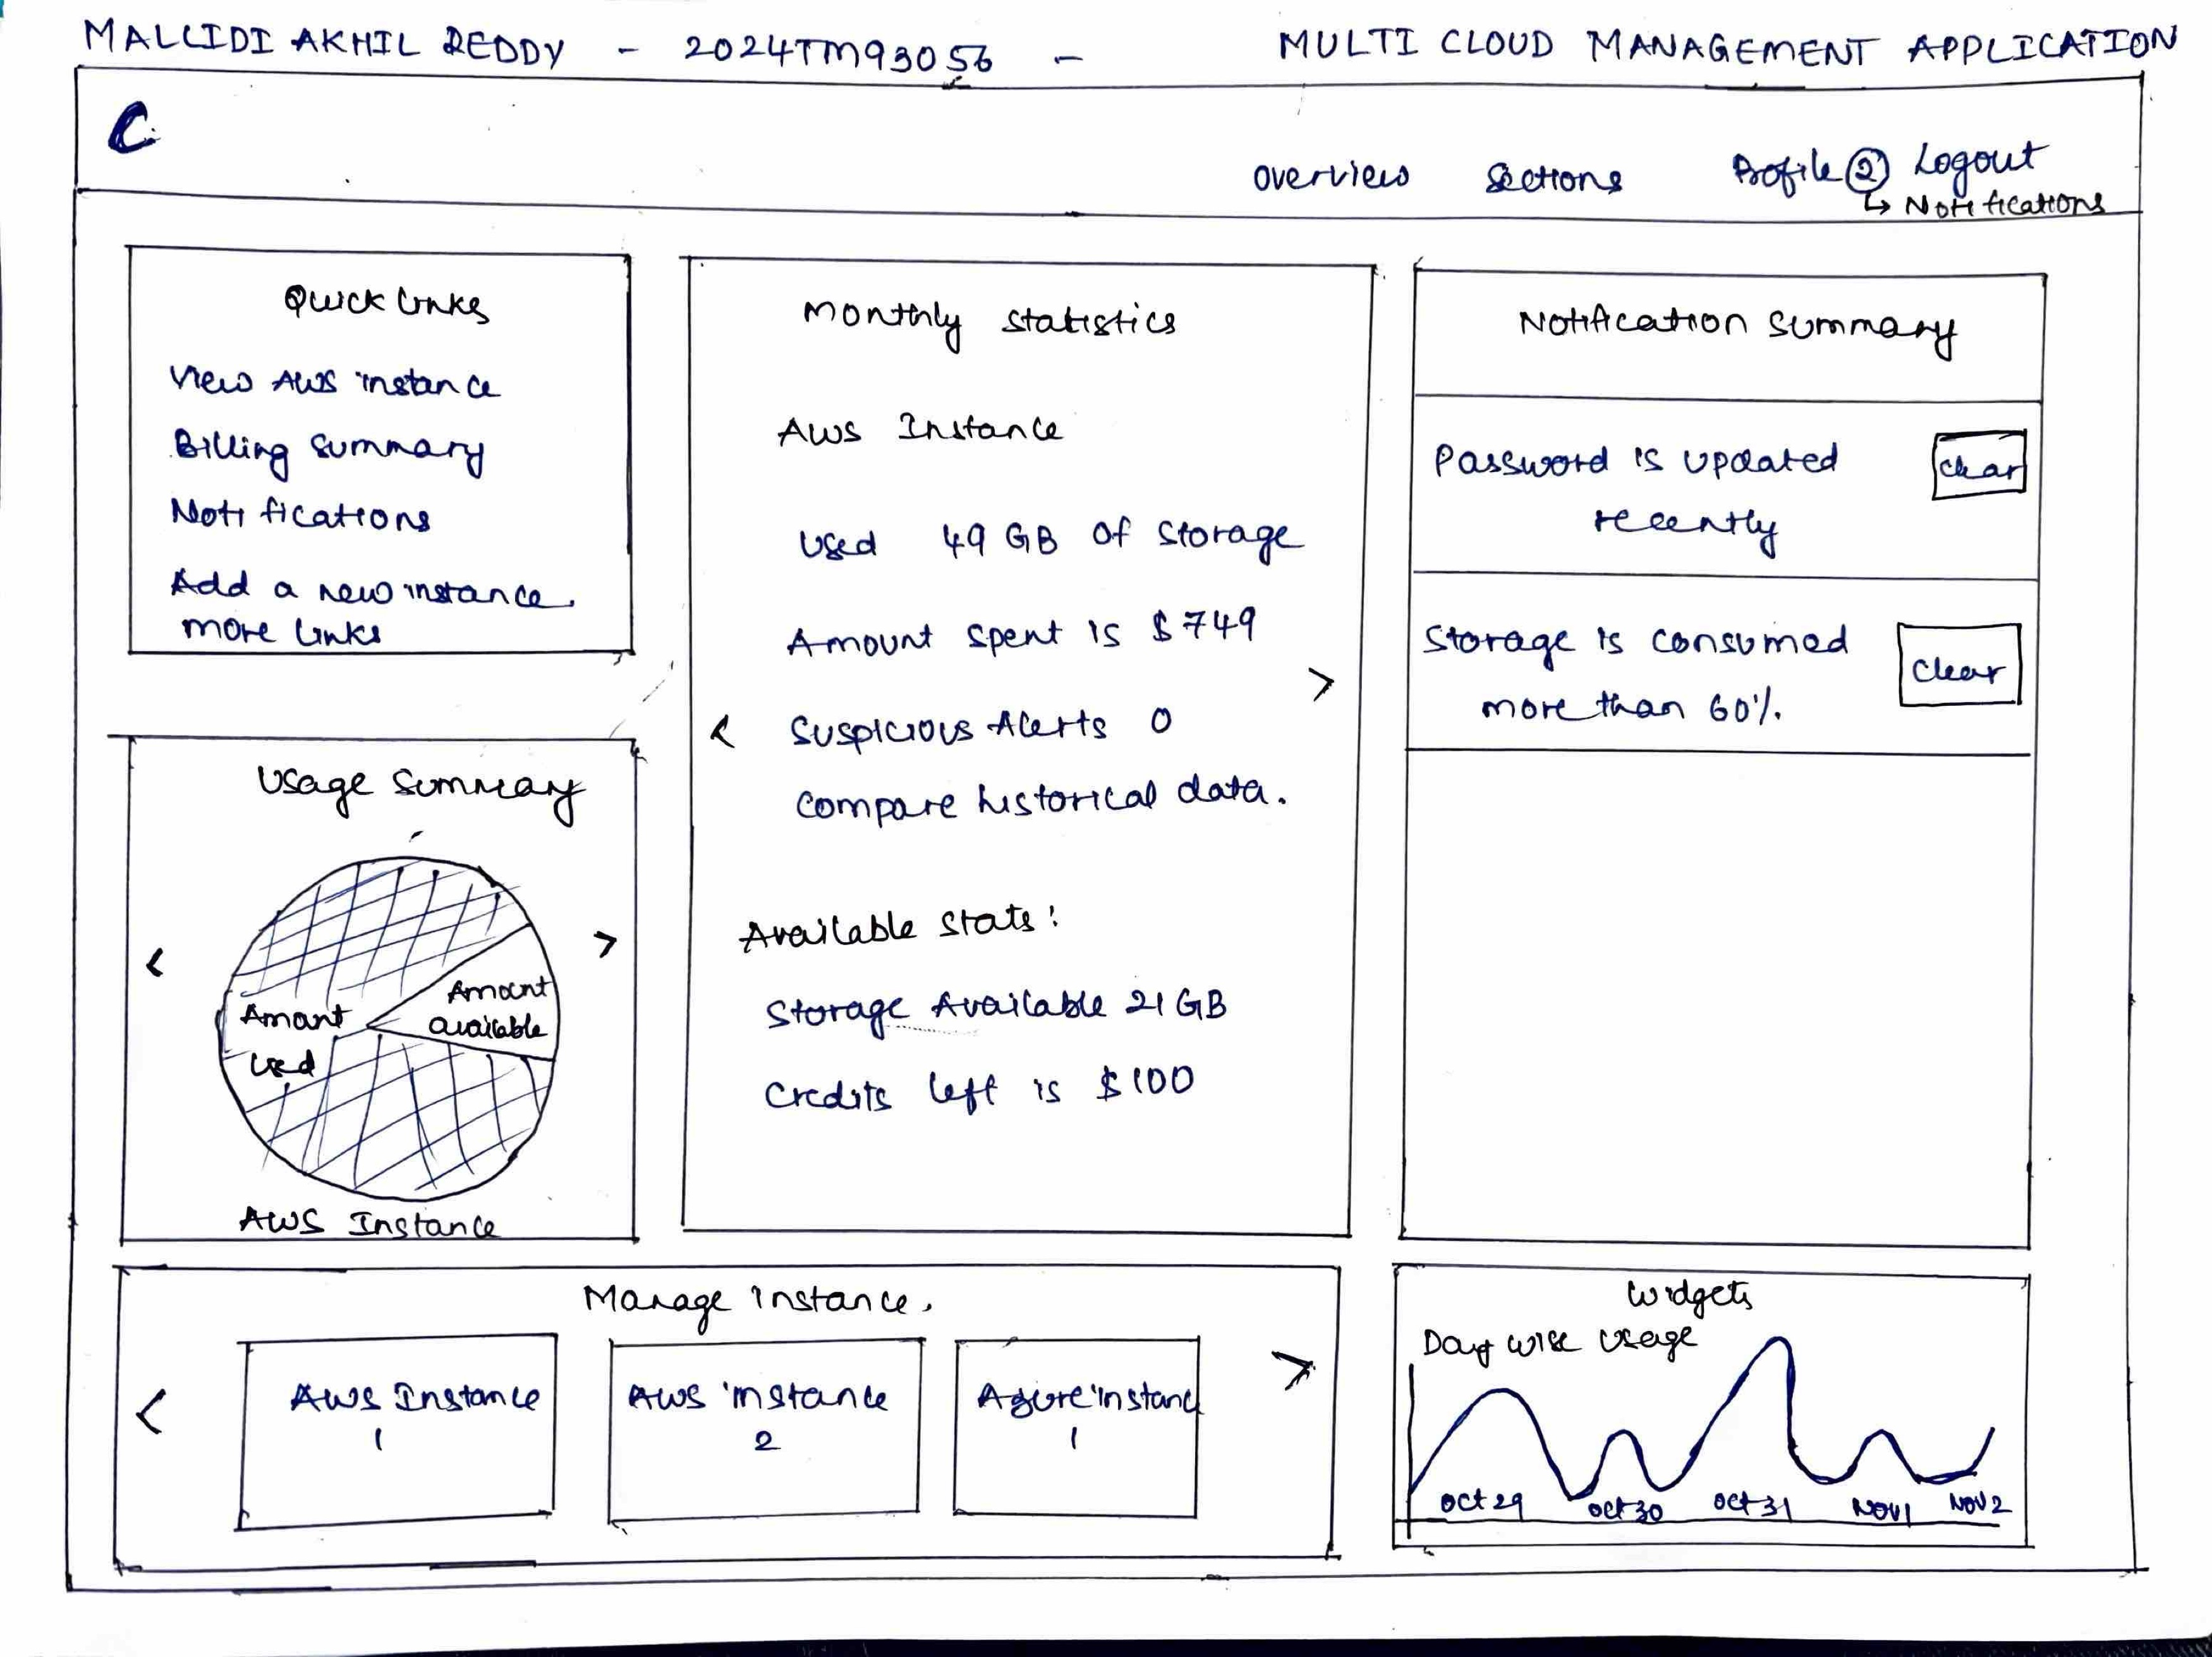 MALLIDI AKHIL REDDY - 2024TM93056 - MULTI CLOUD MANAGEMENT APPLICATION
C
overview Sections Profile 2 Logout
↳ Notifications
Quick Links
View AWS instance
Billing Summary
Notifications
Add a new instance.
more links
Monthly statistics
AWS Instance
Used 49 GB of Storage
Amount spent is $749
>
< Suspicious Alerts 0
Compare historical data.
Available stats:
Storage Available 21 GB
Credits left is $100
Notification Summary
Password is updated clear
recently
Storage is consumed clear
more than 60%.
Usage Summary
< >
Amount
available
Amount
used
AWS Instance
Manage instance.
< >
AWS Instance
1
AWS instance
2
Azure instance
1
Widgets
Day wise usage
Oct 29 Oct 30 Oct 31 Nov 1 Nov 2